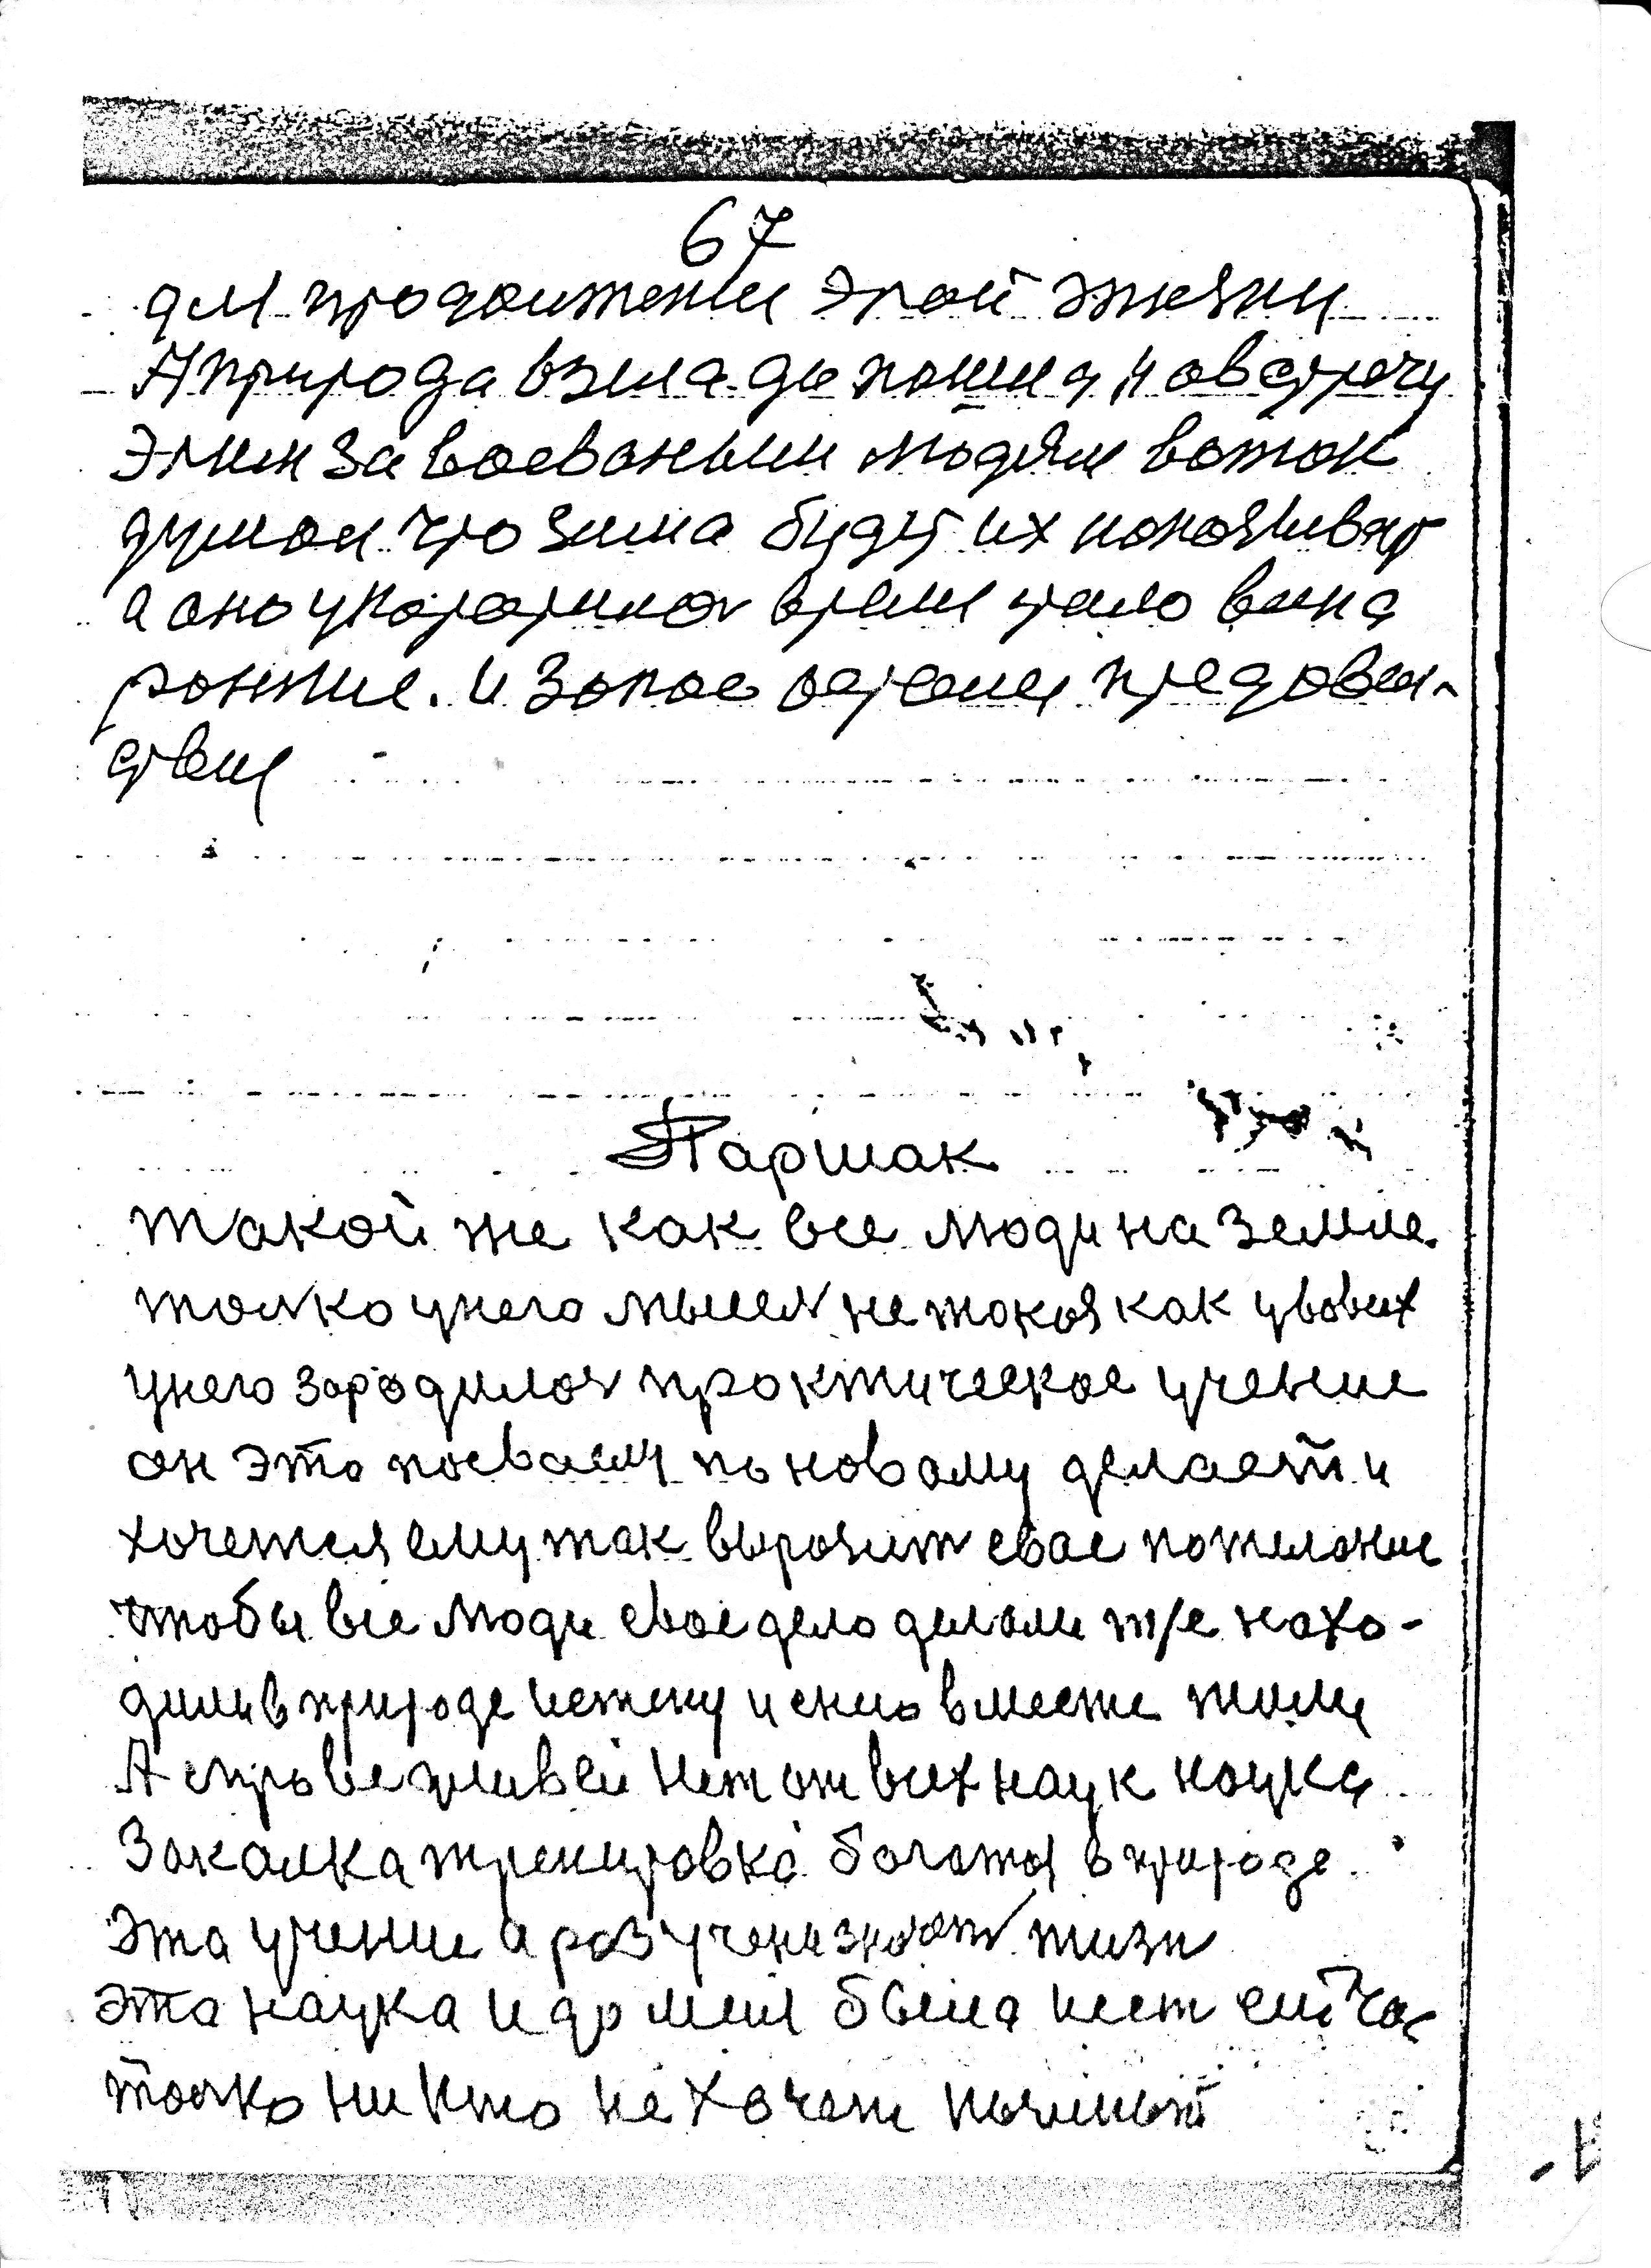 67
для продолжении этой жизни
А природа взяла да пошла на встречу
Этим завоеваным людям воттак
думали что зима будет их
а оно укоротилось время стало
и Запас остался продоволь-
ствия
Паршак
такой же как все люди на Земле
толко унего мысля не такоя как увовсех
унего зародилось практическое учение
он это посваему по новому делает и
хочется ему так выразит свое пожелание
чтобы все люди свое дело делали т/е нахо-
дили в природе истину и снею вместе жили
А справедливей нет от всех наук наука
Закалка тренировка богатоя в природе
Эта учение а раз учение значет жизн
эта наука и до меня была и ест сейчас
толко ни кто не хочет